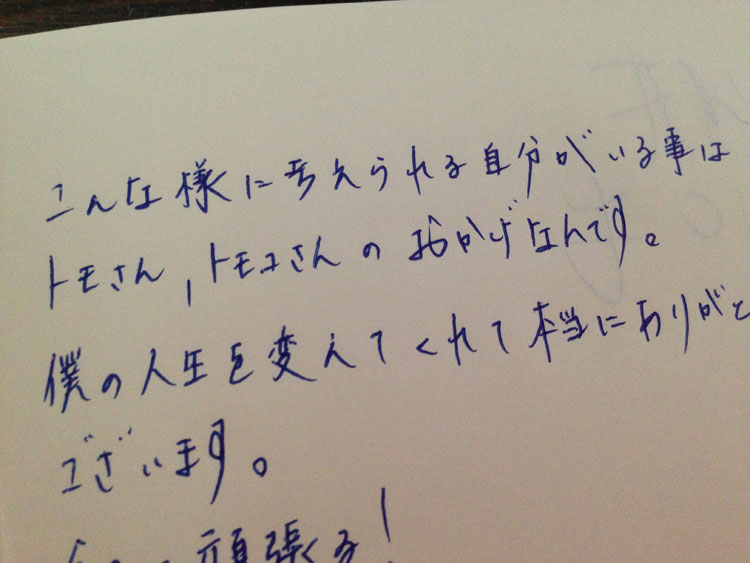 こんな様に考えられる自分がいる事は
トモさん,トモコさんのおかげなんです。
僕の人生を変えてくれて本当にありがと
ございます。
頑張る!